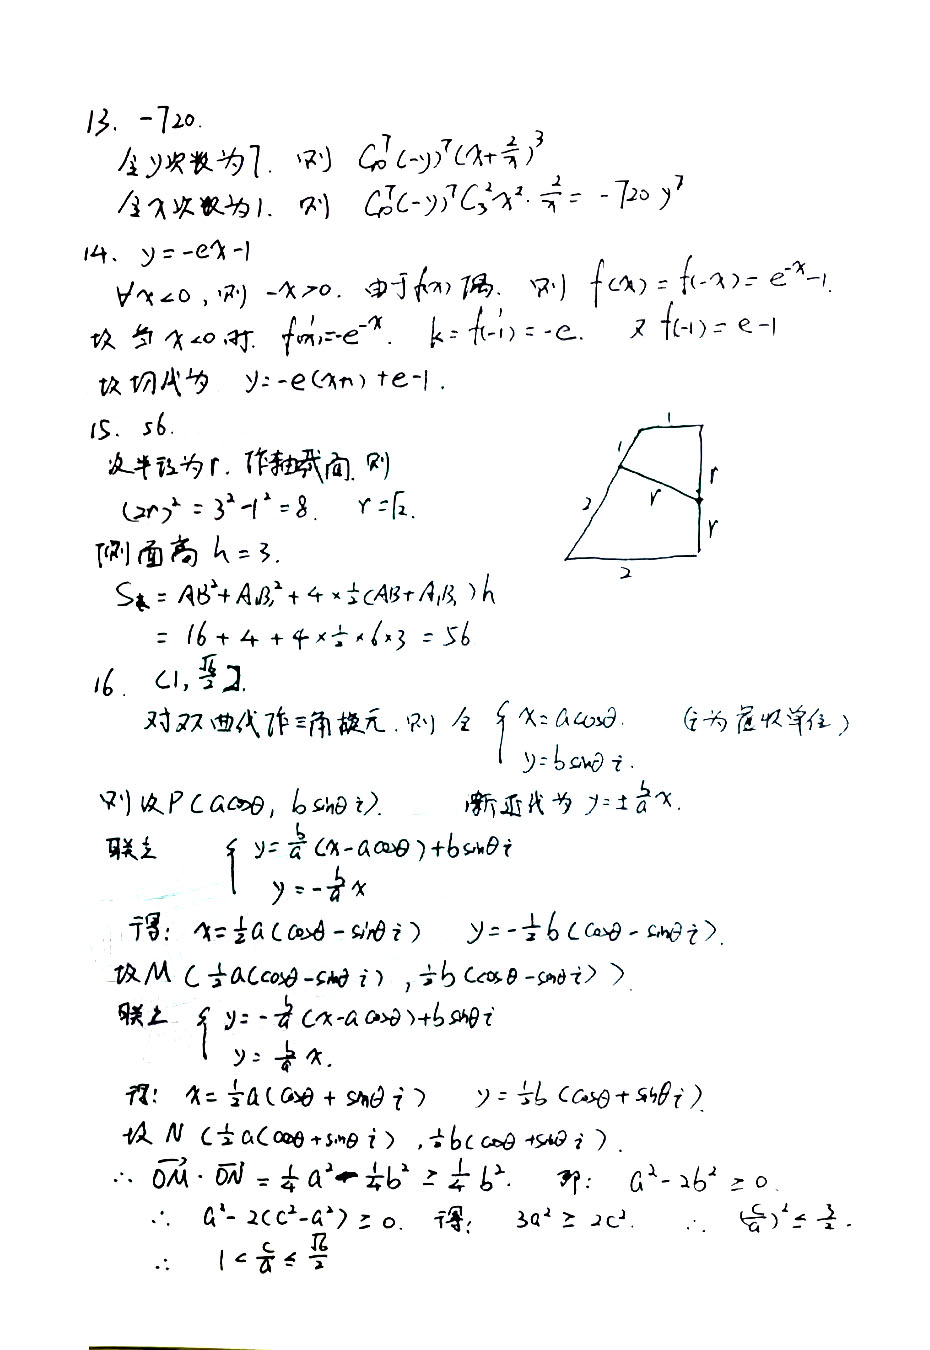 13. -720.
令y次数为7. 则 C₁₀⁷(-y)⁷(x+2/x)³
令x次数为1. 则 C₁₀⁷(-y)⁷C₃²x²·2/x = -720y⁷
14. y=-ex-1
∀x<0, 则 -x>0. 由于f(x)偶. 则 f(x)=f(-x)=e^{-x}-1.
故当x<0时. f'(x)=-e^{-x}. k=f'(-1)=-e. 又f(-1)=e-1
故切线为 y=-e(x+1)+e-1.
15. 56.
设半径为r. 作轴截面. 则
(2r)²=3²-1²=8. r=√2.
侧面高h=3.
S表=AB²+A₁B₁²+4×½(AB+A₁B₁)h
=16+4+4×½×6×3=56
1
1
2
r
r
r
2
16. (1, √6/2].
对双曲线作三角换元. 则令 { x=acosθ. (i为虚数单位)
y=bsinθi.
则设P(acosθ, bsinθi). 渐近线为y=±b/a x.
联立 { y=b/a(x-acosθ)+bsinθi
y=-b/a x
得: x=½a(cosθ-sinθi) y=-½b(cosθ-sinθi).
故M(½a(cosθ-sinθi), -½b(cosθ-sinθi))
联立 { y=-b/a(x-acosθ)+bsinθi
y=b/a x.
得: x=½a(cosθ+sinθi) y=½b(cosθ+sinθi).
故N(½a(cosθ+sinθi), ½b(cosθ+sinθi).
∴ OM·ON=¼a²-¼b²≥¼b². 即: a²-2b²≥0.
∴ a²-2(c²-a²)≥0. 得: 3a²≥2c². ∴ (c/a)²≤3/2.
∴ 1<c/a≤√6/2